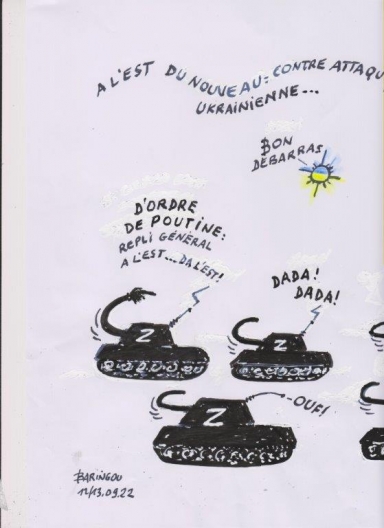 A L'EST DU NOUVEAU: CONTRE ATTAQU
UKRAINIENNE...
BON
DÉBARRAS
D'ORDRE
DE POUTINE:
REPLI GÉNÉRAL
A L'EST... DA L'EST!
DADA!
DADA!
Z
Z
Z
-OUF!
BARINGOU
12/13.09.22